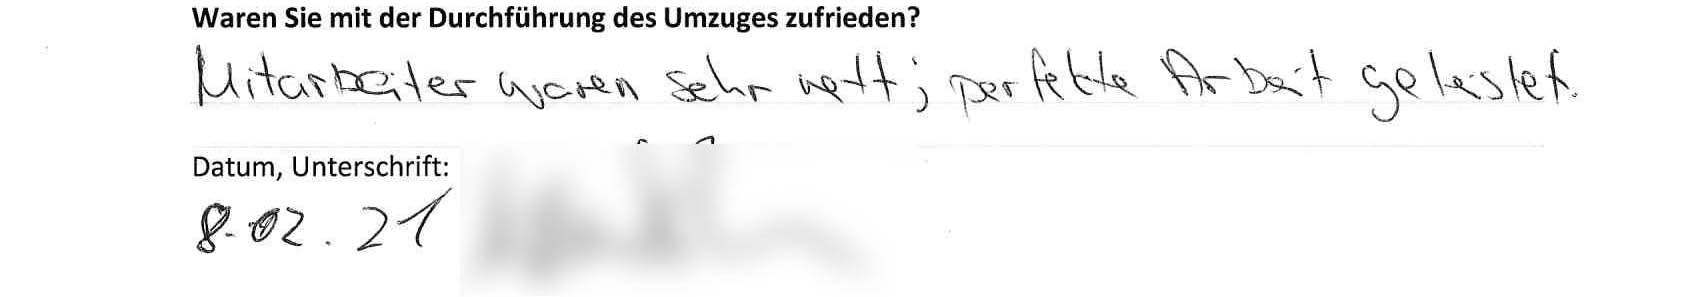 Waren Sie mit der Durchführung des Umzuges zufrieden?
Mitarbeiter waren sehr nett; perfekte Arbeit geleistet.
Datum, Unterschrift:
8.02.21